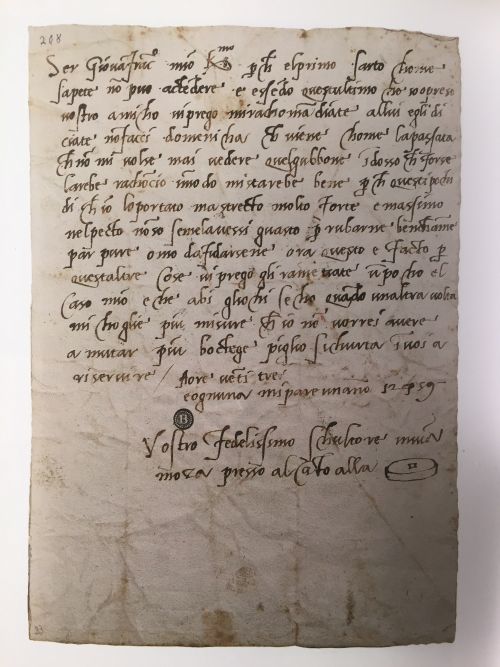 208
Ser Giovafrac° mio K^mo p ch elprimo sarto chome
sapete no può actedere e essedo questultimo che opreso
vostro amicho vi prego mirachomadiate allui e gli di
ciate nofacci domenicha ch viene chome lapassata
ch no mi volse mai vedere quelgubbone idosso ch forse
larebe radiōcio imodo mistarebe bene p ch questi pochi
di ch io loportato mastrecto molto forte e massimo
nelpecto noso semelavessi guasto p rubarne benchame
par pure omo dafidarsene ora questo e facto p
questaltre cose vi prego gli rametiate upocho el
caso mio e che abi gliochi secho quado unaltra volta
mi choglie piu misure ch io ne vorrei avere
a mutar piu boctege piglio sichurta i voi a
riservire / Aore veti trei
eognuna mipare unano 12
Vostro fedelissimo schultore inuia
moza presso alcāto alla